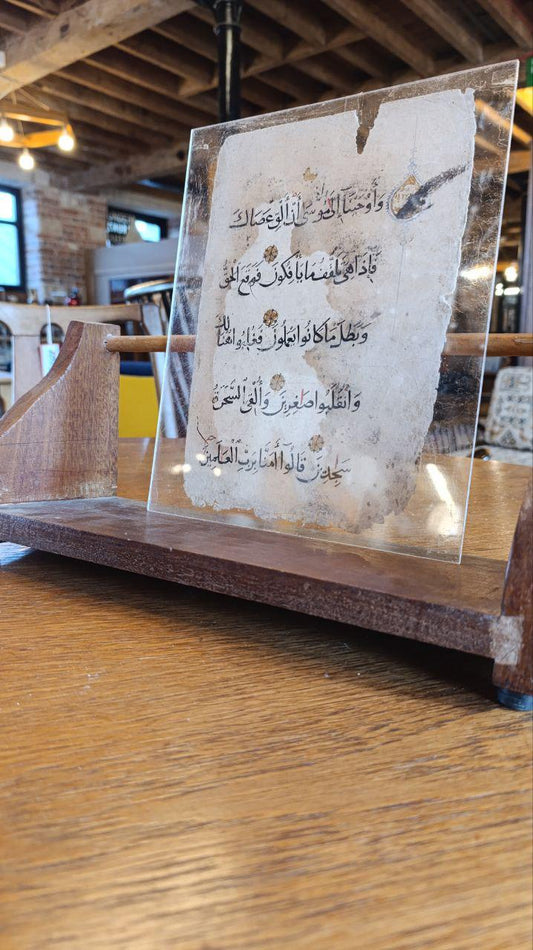 وَأَوْحَيْنَا إِلَى مُوسَى أَنْ أَلْقِ عَصَاكَ
فَإِذَا هِيَ تَلْقَفُ مَا يَأْفِكُونَ فَوَقَعَ الْحَقُّ
وَبَطَلَ مَا كَانُوا يَعْمَلُونَ فَغُلِبُوا هُنَالِكَ
وَانْقَلَبُوا صَاغِرِينَ وَأُلْقِيَ السَّحَرَةُ
سَاجِدِينَ قَالُوا آمَنَّا بِرَبِّ الْعَالَمِينَ